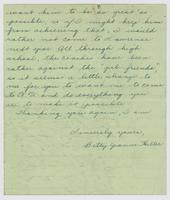 want him to be as great as
possible, so if I might keep him
from achieving that, I would
rather not come to summer
next year. All through high
school, the coaches have been
rather against the "girl-friends",
so it seems a little strange to
me for you to want me to come
to and do everything you
can to make it possible.
Thanking you again, I am
Sincerely yours,
Betty Jeanne